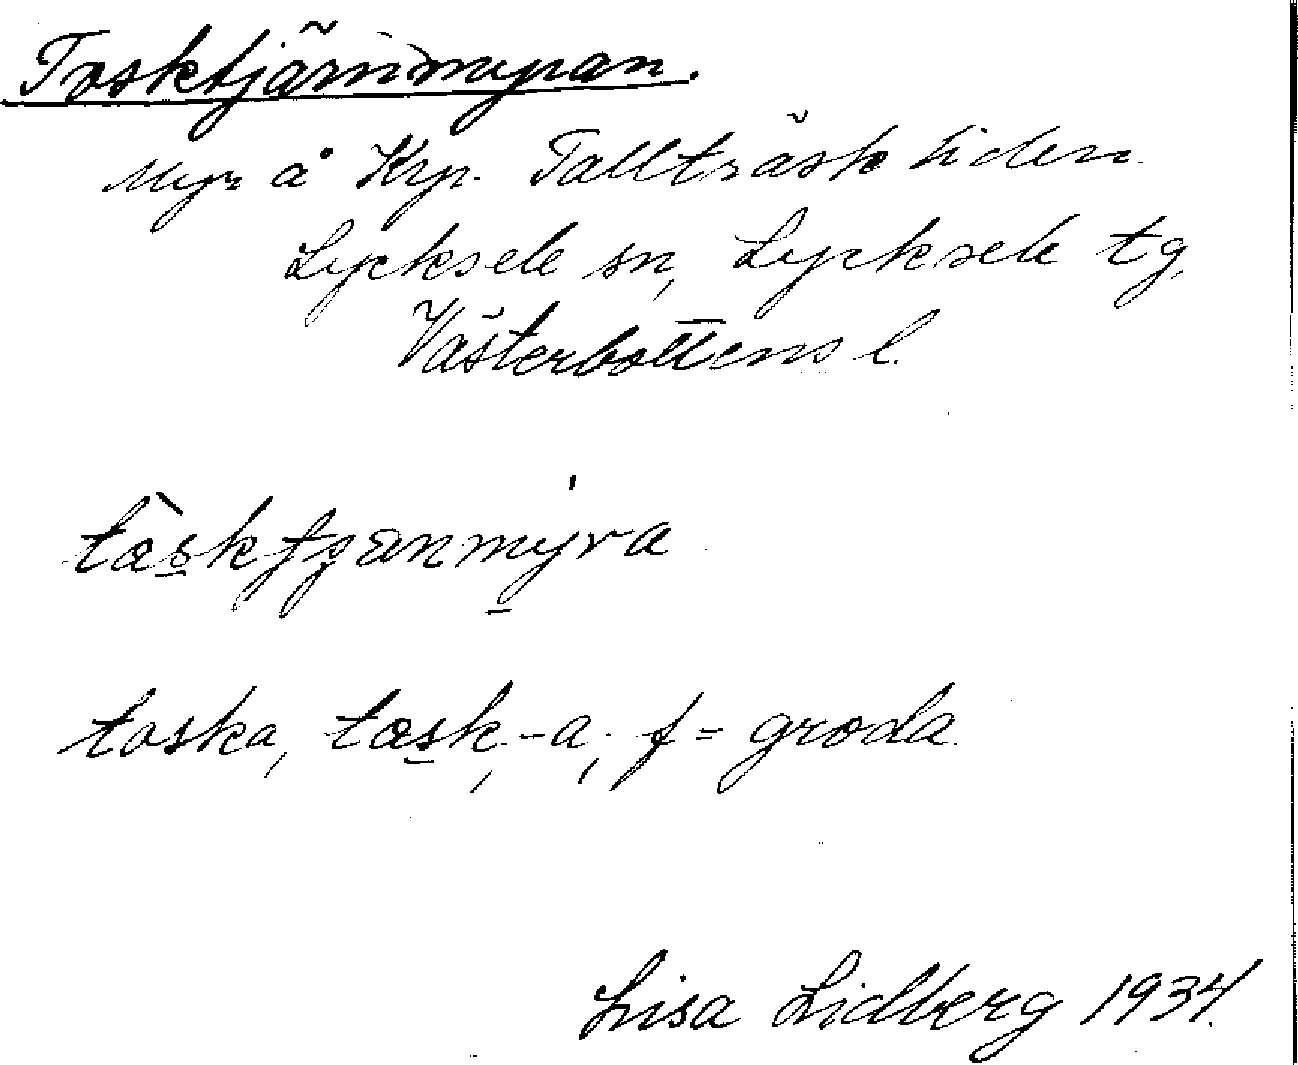 Tosktjärnmyran.
Myr å Krp. Tallträskliden
Lycksele sn, Lycksele tg,
Västerbottens l.
tœsktjanmyra
toska, tœsk, -a, f = groda
Lisa Lidberg 1934.